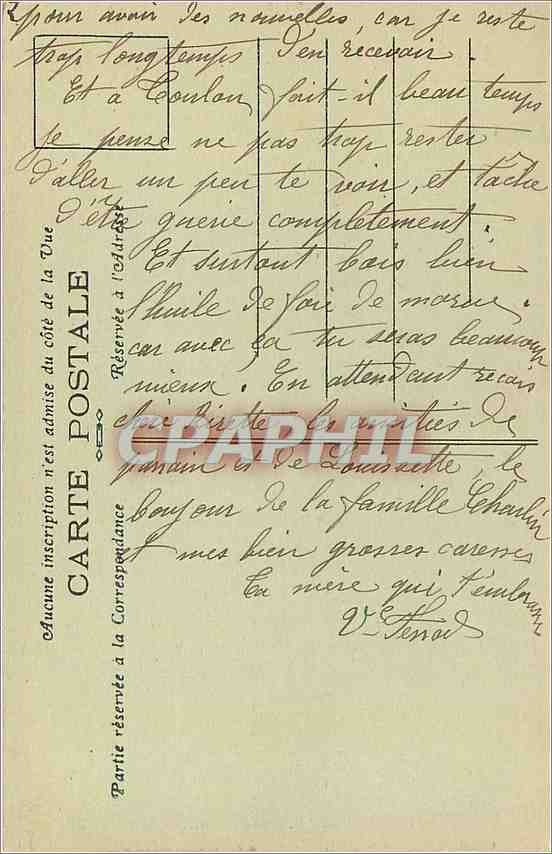 pour avoir des nouvelles, car je reste
trop longtemps d'en recevoir.
Et a Toulon, fait-il beau temps
Je pense ne pas trop rester
d'aller un peu te voir, et tâche
d'être guerie complètement.
Et surtout bois bien
l'huile de foie de morue,
car avec ça tu seras beaucoup
mieux. En attendant reçois
les amitiés de
parrain et de Louisette, le
bonjour de la famille Charlin
et mes bien grosses caresses
Ta mère qui t'embrasse
Vve
Aucune inscription n'est admise du côté de la Vue
CARTE POSTALE
Réservée à l'Adresse
Partie réservée à la Correspondance
CPAPHIL